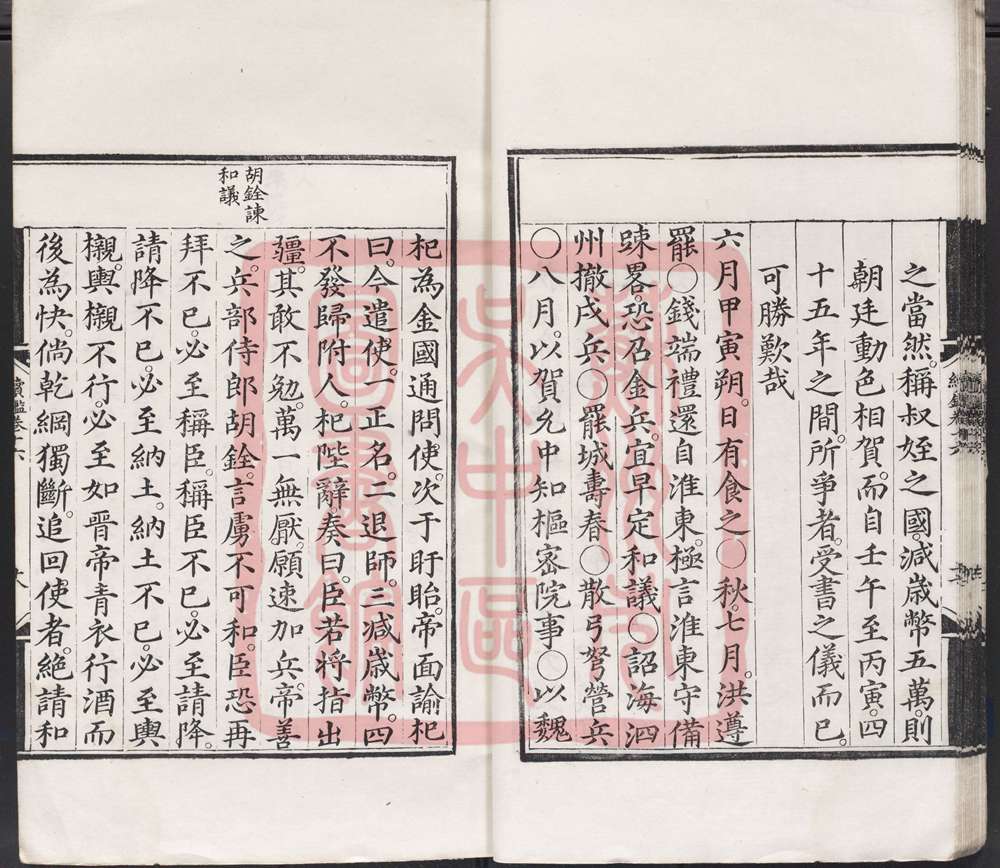 之當然稱叔姪之國減歲幣五萬則
朝廷動色相賀而自壬午至丙寅四
十五年之間所爭者受書之儀而已
可勝歎哉
六月甲寅朔日有食之〇秋七月洪遵
罷〇錢端禮還自淮東極言淮東守備
踈畧恐召金兵宜早定和議〇詔海泗
州撤戍兵〇罷城壽春〇散弓弩營兵
〇八月以賀允中知樞密院事〇以魏
胡銓諫
和議
杞為金國通問使次于盱眙帝面諭杞
曰今遣使一正名二退師三减歲幣四
不發歸附人杞陛辭奏曰臣若將指出
疆其敢不勉萬一無厭願速加兵帝善
之兵部侍郎胡銓言虜不可和臣恐再
拜不已必至稱臣稱臣不已必至請降
請降不已必至納土納土不已必至輿
櫬輿櫬不行必至如晋帝青衣行酒而
後為快倘乾綱獨斷追回使者絕請和
續鑑卷十六